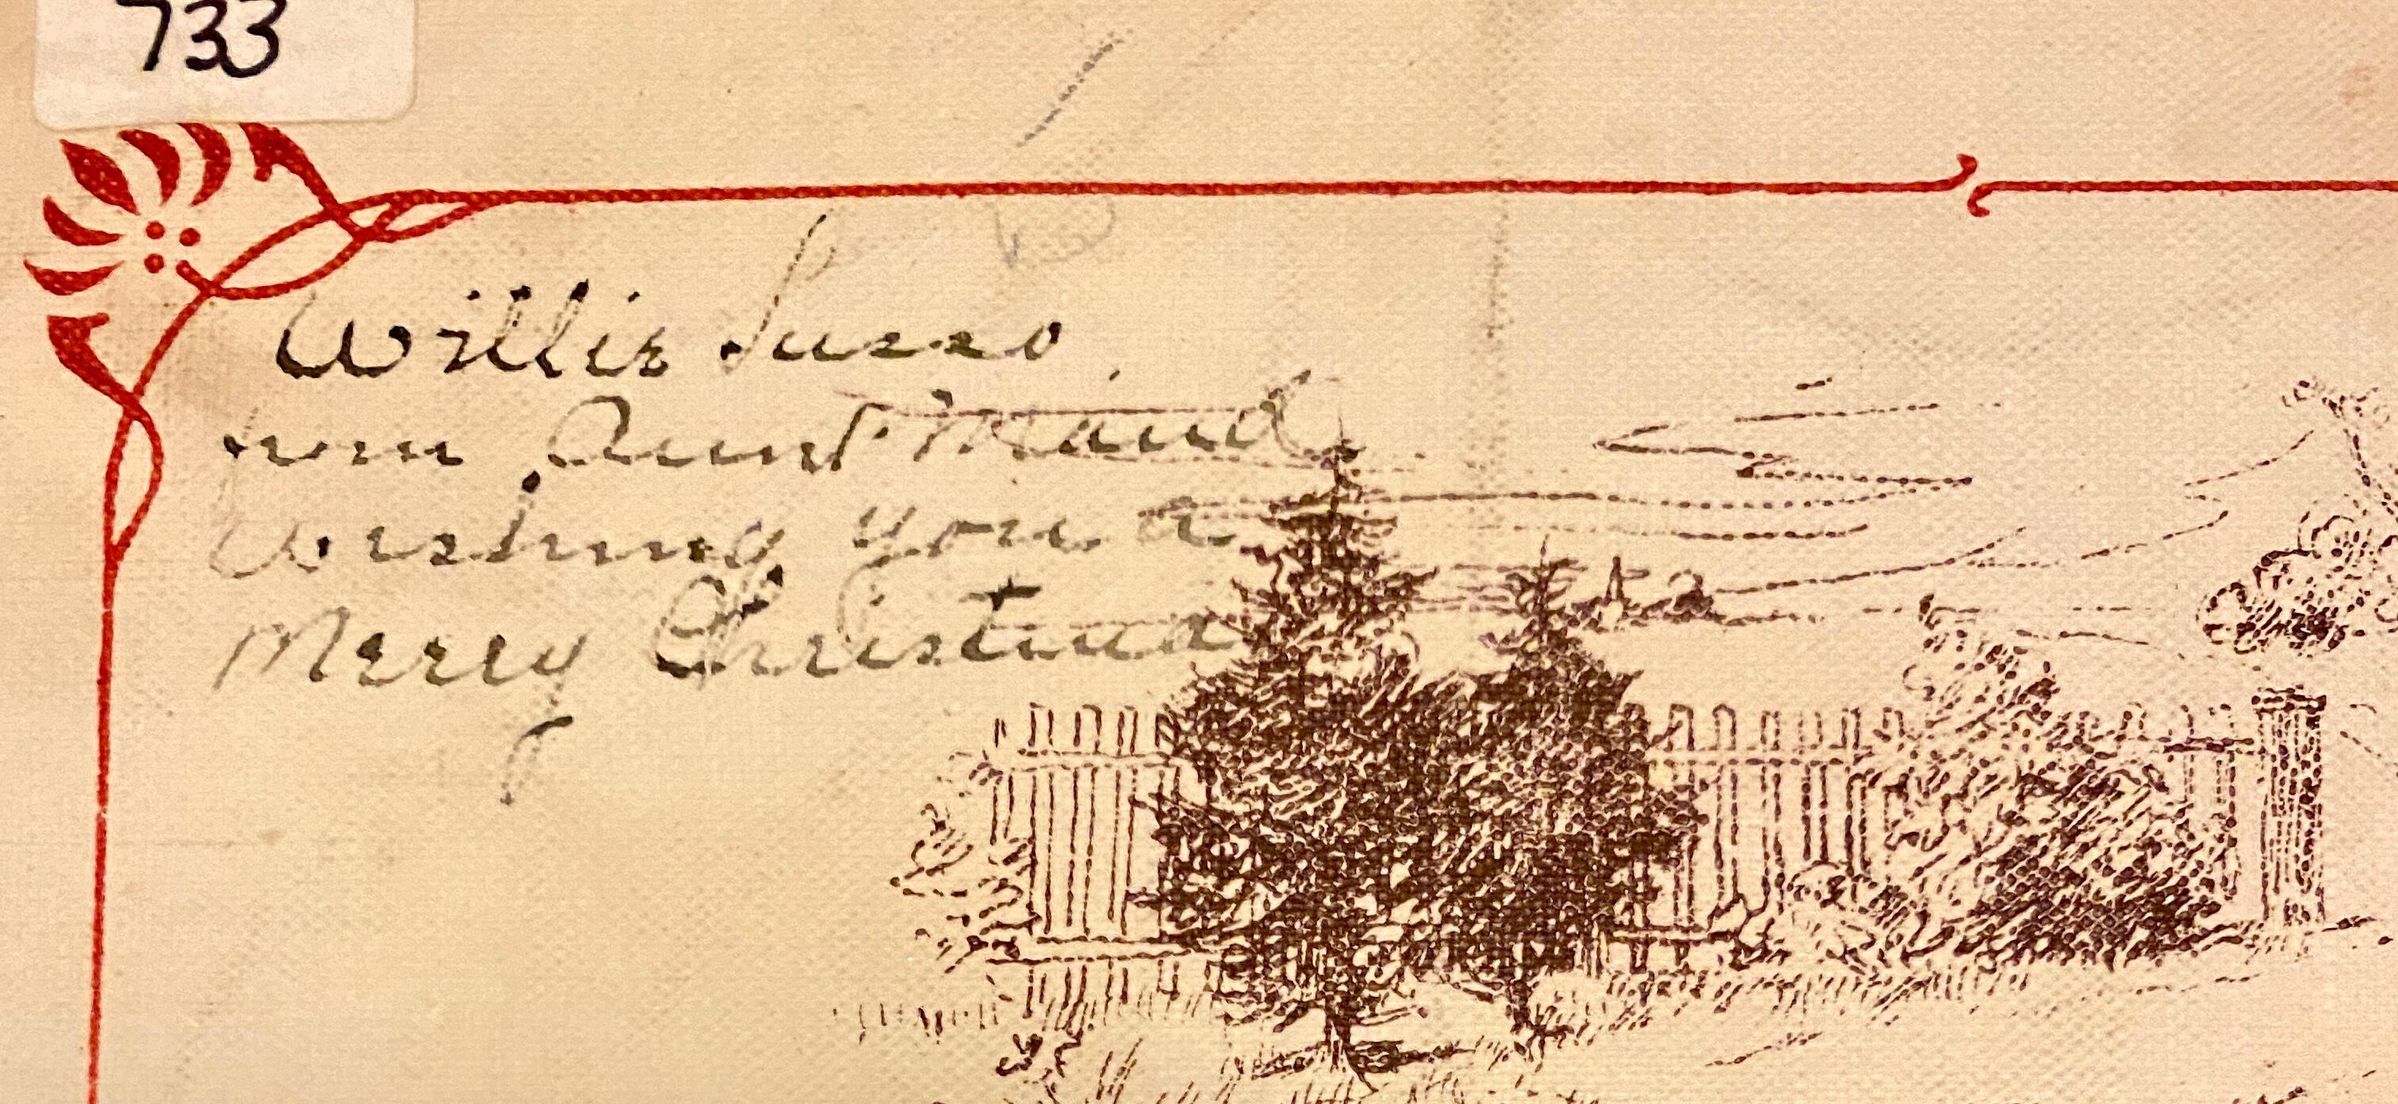 733
Willie
from Aunt Maud
Wishing you a
Merry Christmas